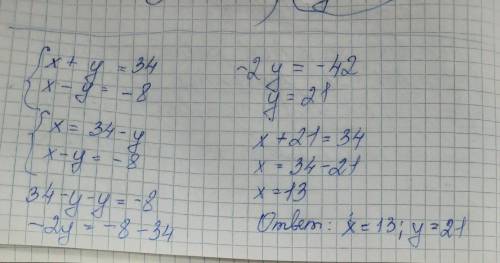 {x + y = 34
x - y = -8
{x = 34 - y
x - y = -8
34 - y - y = -8
-2y = -8 - 34
-2y = -42
y = 21
x + 21 = 34
x = 34 - 21
x = 13
Ответ: x = 13; y = 21